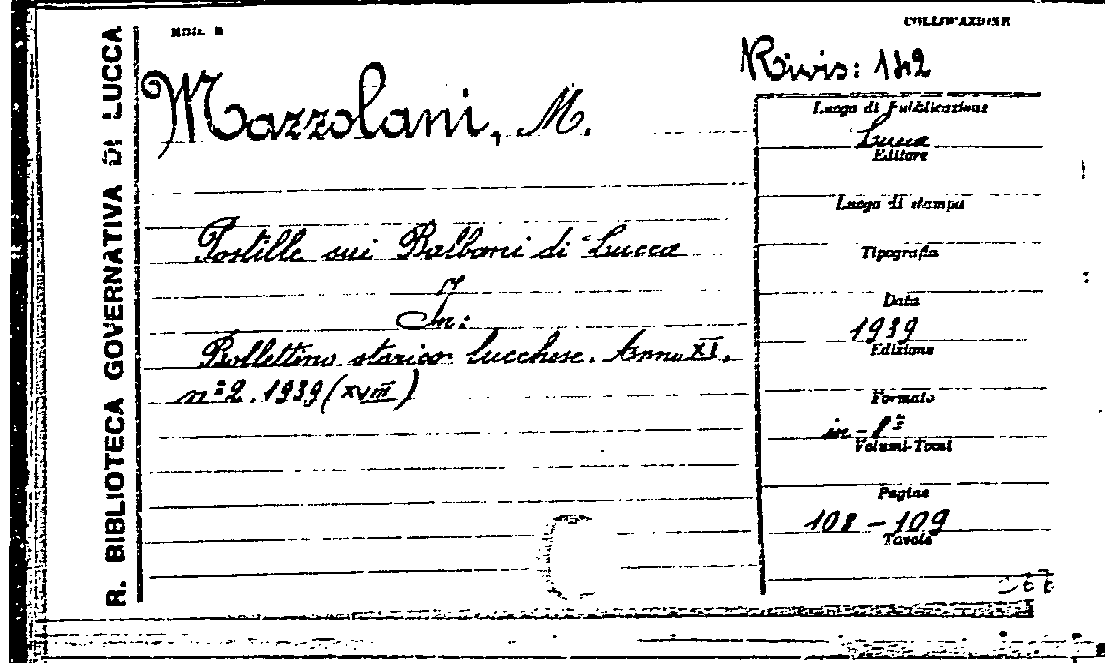 R. BIBLIOTECA GOVERNATIVA DI LUCCA
MOD. B
COLLOCAZIONE
Rivis: 142
Mazzolani, M.
Luogo di Pubblicazione
Lucca
Editore
Luogo di stampa
Postille sui Balbani di Lucca
Tipografia
Data
In:
1939
Edizione
Bollettino storico lucchese. Anno XI.
nº 2. 1939 (XVIII)
Formato
in-8º
Volumi-Tomi
Pagine
108 - 109
Tavole